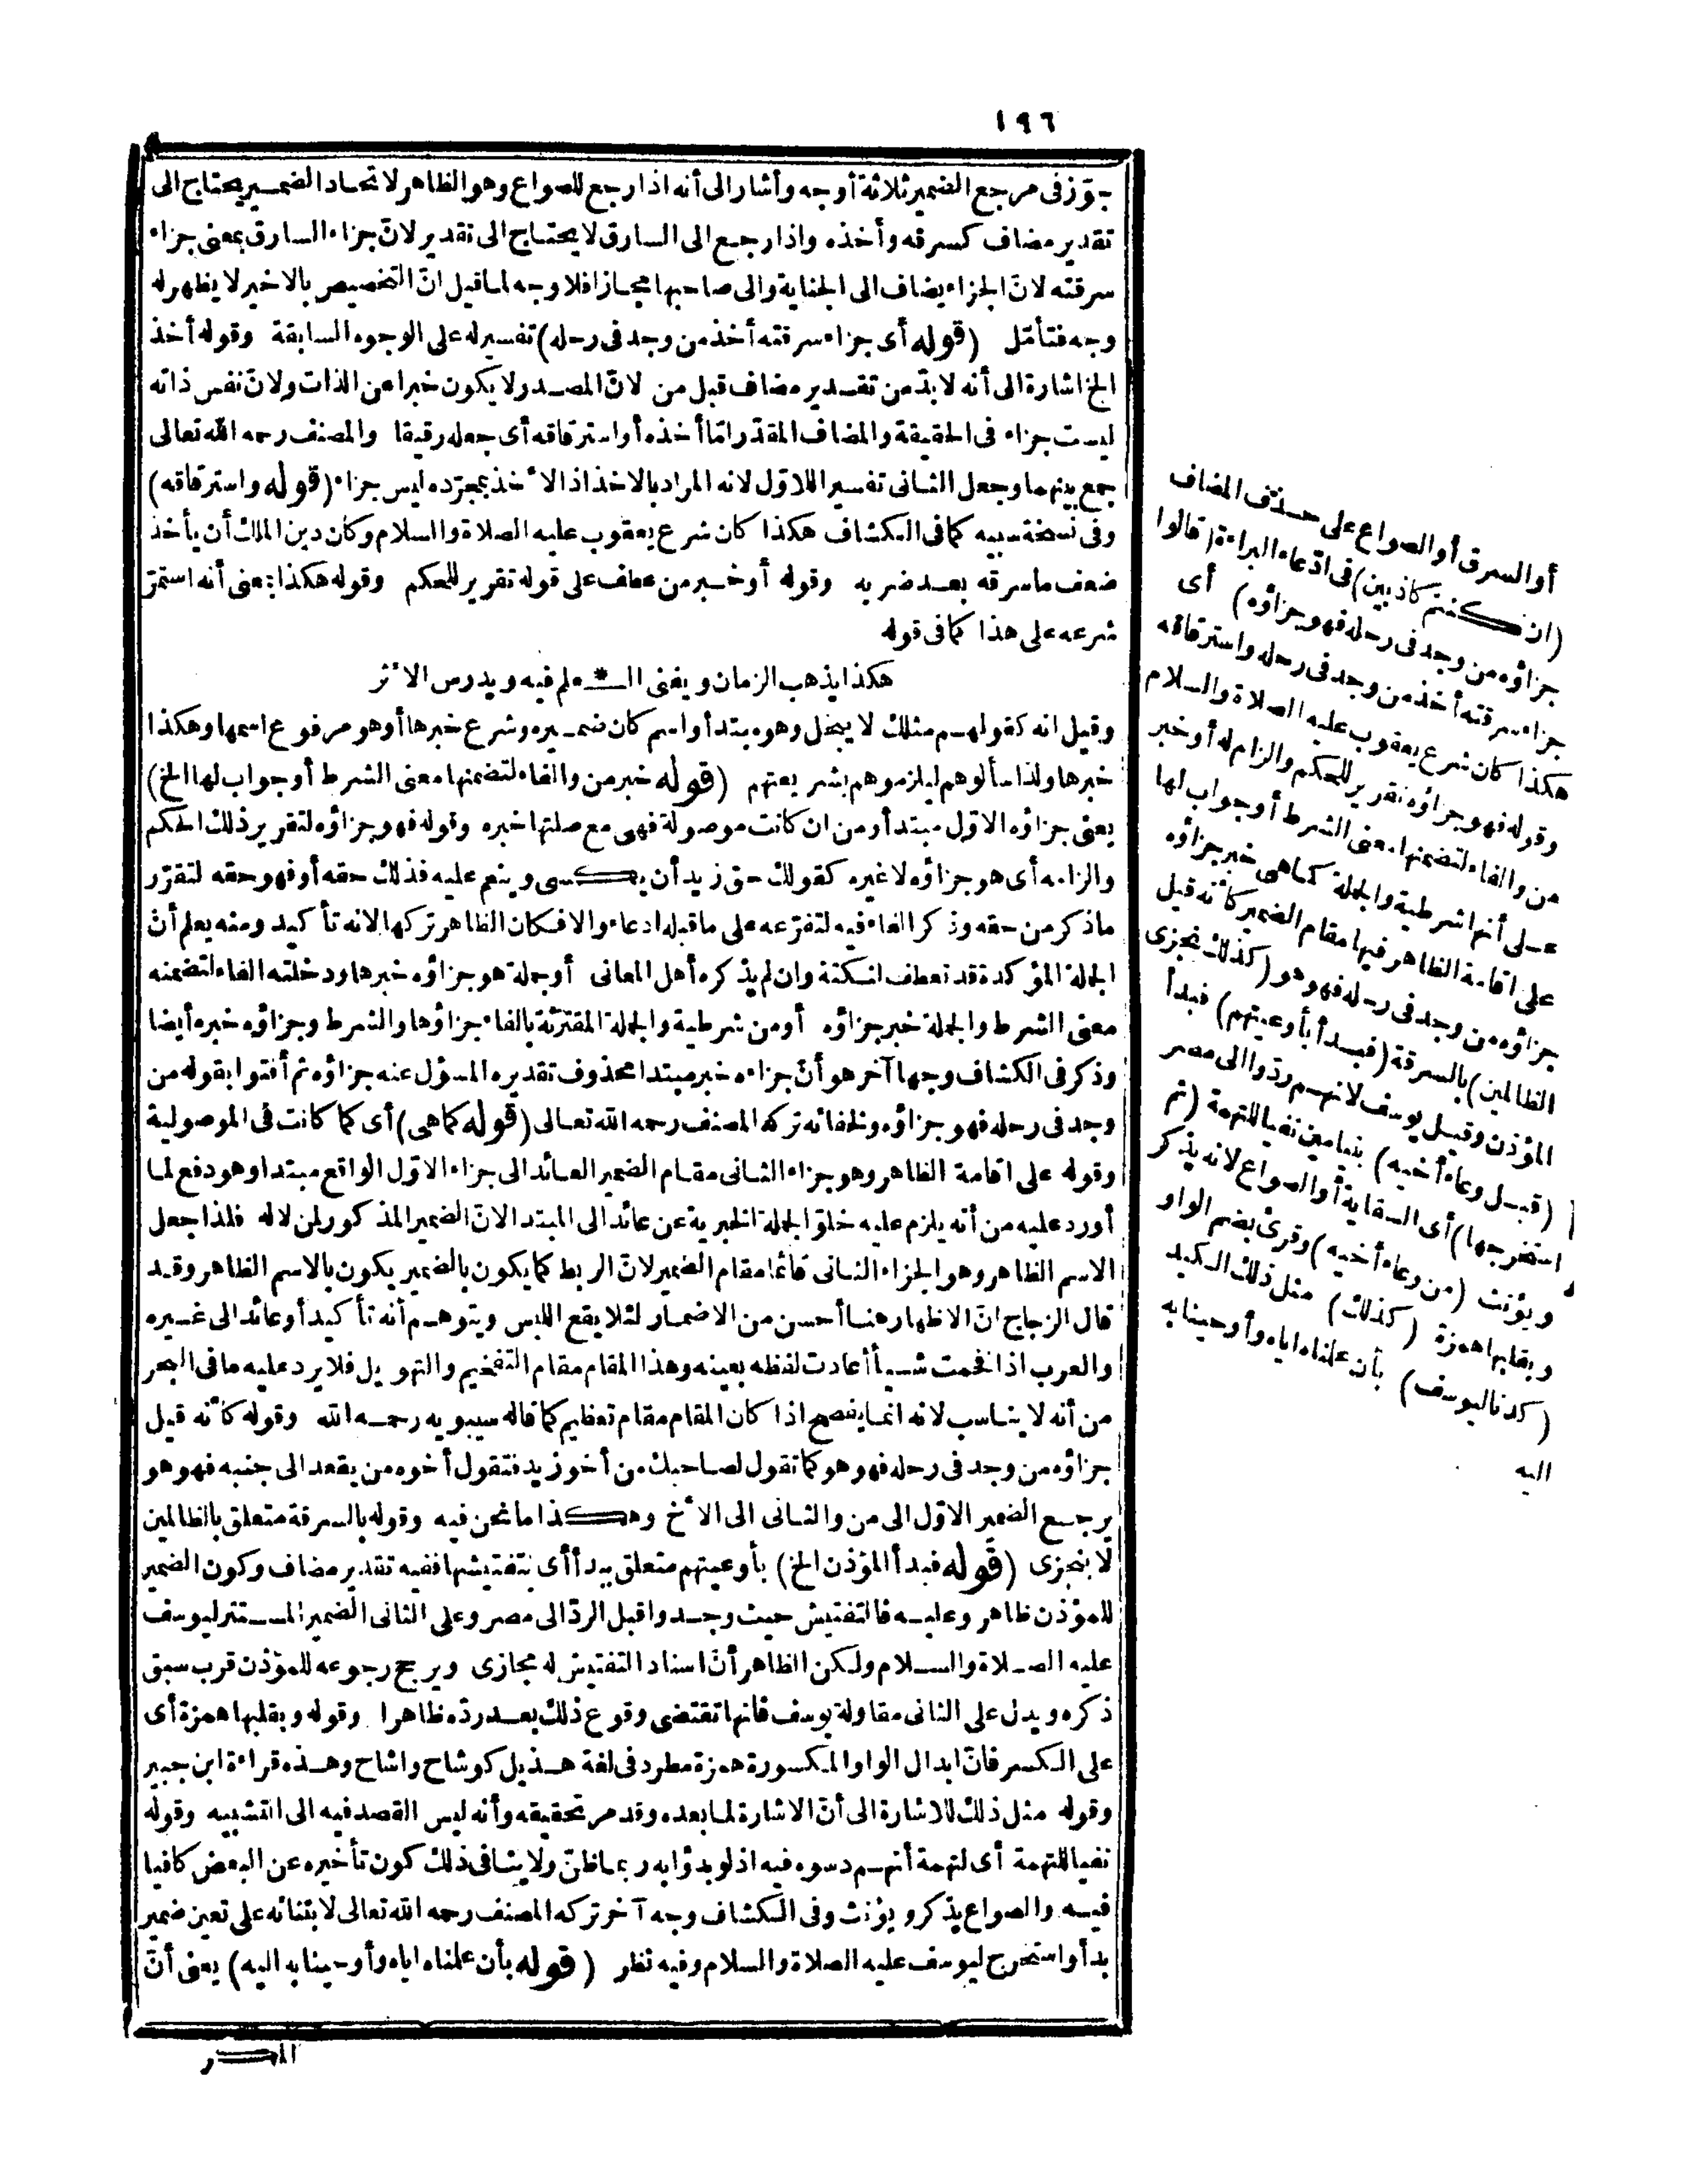 ١٩٦
جوّز فى مرجع الضمير ثلاثة أوجه وأشار الى أنه اذا رجع للصواع وهو الظاهر لاتحاد الضمير يحتاج الى
تقدير مضاف كسرقه وأخذه واذا رجع الى السارق لا يحتاج الى تقدير لانّ جزاء السارق بمعنى جزاء
سرقته لانّ الجزاء يضاف الى الجناية والى صاحبها مجازا فلا وجه لما قيل انّ التخصيص بالاخير لا يظهر له
وجه فتأمّل (قوله أى جزاء سرقته أخذ من وجد فى رحله) تفسير له على الوجوه السابقة وقوله أخذ
الخ اشارة الى أنه لا بدّ من تقدير مضاف قبل من لانّ المصدر لا يكون خبرا عن الذات ولانّ نفس ذاته
ليست جزاء فى الحقيقة والمضاف المقدّر امّا أخذه أو استرقاقه أى جعله رقيقا والمصنف رحمه الله تعالى
جمع بينهما وجعل الثانى تفسيرا للاوّل لانه المراد بالاخذ اذ الأخذ بمجرّده ليس جزاء (قوله واسترقاقه)
وفى نسخة سبيه كما فى الكشاف هكذا كان شرع يعقوب عليه الصلاة والسلام وكان دين الملك أن يأخذ
ضعف ما سرقه بعد ضربه وقوله أو خبر من عطف على قوله تقرير للحكم وقوله هكذا يعنى أنه استمرّ
شرعه على هذا كما فى قوله
هكذا يذهب الزمان ويفنى الـ * ـعلم فيه ويدرس الأثر
وقيل انه كقولهم مثلك لا يبخل وهو مبتدأ واسم كان ضميره وشرع خبرها أو هو مرفوع اسمها وهكذا
خبرها ولذا سألوهم ليلزموهم بشريعتهم (قوله خبر من والفاء لتضمنها معنى الشرط أو جواب لها الخ)
يعنى جزاؤه الاوّل مبتدأ ومن ان كانت موصولة فهى مع صلتها خبره وقوله فهو جزاؤه لتقرير ذلك الحكم
والزامه أى هو جزاؤه لا غيره كقولك حق زيد أن يكسى وينعم عليه فذلك حقه أو فهو حقه لتقرّر
ما ذكر من حقه وذكر الفاء فيه لتفرّعه على ما قبله ادعاء والا فكان الظاهر تركها لانه تأكيد ومنه يعلم أنّ
الجملة المؤكدة قد تعطف لنكتة وان لم يذكره أهل المعانى أو جملة هو جزاؤه خبرها ودخلته الفاء لتضمنه
معنى الشرط والجملة خبر جزاؤه أو من شرطية والجملة المقترنة بالفاء جزاؤها والشرط وجزاؤه خبره أيضا
وذكر فى الكشاف وجها آخر هو أنّ جزاءه خبر مبتدا محذوف تقديره المسؤل عنه جزاؤه ثم أفتوا بقوله من
وجد فى رحله فهو جزاؤه ولخفائه تركه المصنف رحمه الله تعالى (قوله كما هى) أى كما كانت فى الموصولية
وقوله على اقامة الظاهر وهو جزاء الثانى مقام الضمير العائد الى جزاء الاوّل الواقع مبتدا وهو دفع لما
أورد عليه من أنه يلزم عليه خلوّ الجملة الخبرية عن عائد الى المبتدا لانّ الضمير المذكور لمن لا له فلذا جعل
الاسم الظاهر وهو الجزاء الثانى قائما مقام الضمير لانّ الربط كما يكون بالضمير يكون بالاسم الظاهر وقد
قال الزجاج انّ الاظهار هنا أحسن من الاضمار لئلا يقع اللبس ويتوهم أنه تأكيد أو عائد الى غيره
والعرب اذا فخمت شيأ أعادت لفظه بعينه وهذا المقام مقام التفخيم والتهويل فلا يرد عليه ما فى البحر
من أنه لا يناسب لانه انما يفصح اذا كان المقام مقام تعظيم كما قاله سيبويه رحمه الله وقوله كأنه قيل
جزاؤه من وجد فى رحله فهو هو كما تقول لصاحبك من أخو زيد فتقول أخوه من يقعد الى جنبه فهو هو
يرجع الضمير الاوّل الى من والثانى الى الأخ وهكذا ما نحن فيه وقوله بالسرقة متعلق بالظالمين
لا بنجزى (قوله فبدأ المؤذن الخ) بأوعيتهم متعلق ببدأ أى بتفتيشها ففيه تقدير مضاف وكون الضمير
للمؤذن ظاهر وعليه فالتفتيش حيث وجدوا قبل الردّ الى مصر وعلى الثانى الضمير المستتر ليوسف
عليه الصلاة والسلام ولكن الظاهر أنّ اسناد التفتيش له مجازى ويرجح رجوعه للمؤذن قرب سبق
ذكره ويدل على الثانى مقاولة يوسف فانها تقتضى وقوع ذلك بعد ردّه ظاهرا وقوله وبقلبها همزة أى
على الكسر فانّ ابدال الواو المكسورة همزة مطرد فى لغة هذيل كوشاح واشاح وهذه قراءة ابن جبير
وقوله مثل ذلك للاشارة الى أنّ الاشارة لما بعده وقد مر تحقيقه وأنه ليس القصد فيه الى التشبيه وقوله
نفيا للتهمة أى لتهمة أنهم دسوه فيه اذ لو بدؤا به ربما ظنّ ولا ينافى ذلك كون تأخيره عن البعض كافيا
فيه والصواع يذكر ويؤنث وفى الكشاف وجه آخر تركه المصنف رحمه الله تعالى لابتنائه على تعين ضمير
بدأ واستخرج ليوسف عليه الصلاة والسلام وفيه نظر (قوله بأن علمناه اياه وأوحينا به اليه) يعنى أنّ
المكر
أو السرق أو الصواع على حذف المضاف
(ان كنتم كاذبين) فى ادّعاء البراءة (قالوا
جزاؤه من وجد فى رحله فهو جزاؤه) أى
جزاء سرقته أخذ من وجد فى رحله واسترقاقه
هكذا كان شرع يعقوب عليه الصلاة والسلام
وقوله فهو جزاؤه تقرير للحكم والزام له أو خبر
من والفاء لتضمنها معنى الشرط أو جواب لها
على أنها شرطية والجملة كما هى خبر جزاؤه
على اقامة الظاهر فيها مقام الضمير كأنه قيل
جزاؤه من وجد فى رحله فهو هو (كذلك نجزى
الظالمين) بالسرقة (فبدأ بأوعيتهم) فبدأ
المؤذن وقيل يوسف لانهم ردّوا الى مصر
(قبل وعاء أخيه) بنيامين نفيا للتهمة (ثم
استخرجها) أى السقاية أو الصواع لانه يذكر
ويؤنث (من وعاء أخيه) وقرئ بضم الواو
وبقلبها همزة (كذلك) مثل ذلك الكيد
(كدنا ليوسف) بأن علمناه اياه وأوحينا به
اليه